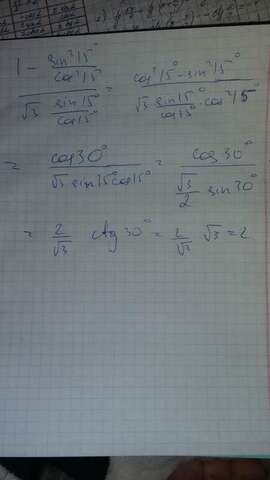 1 - sin²15° / cos²15°
√3 sin15° / cos15°
= cos²15° - sin²15° / √3 sin15° / cos15° · cos²15°
= cos30° / √3 sin15° cos15° = cos30° / √3/2 sin30°
= 2/√3 ctg 30° = 2/√3 √3 = 2